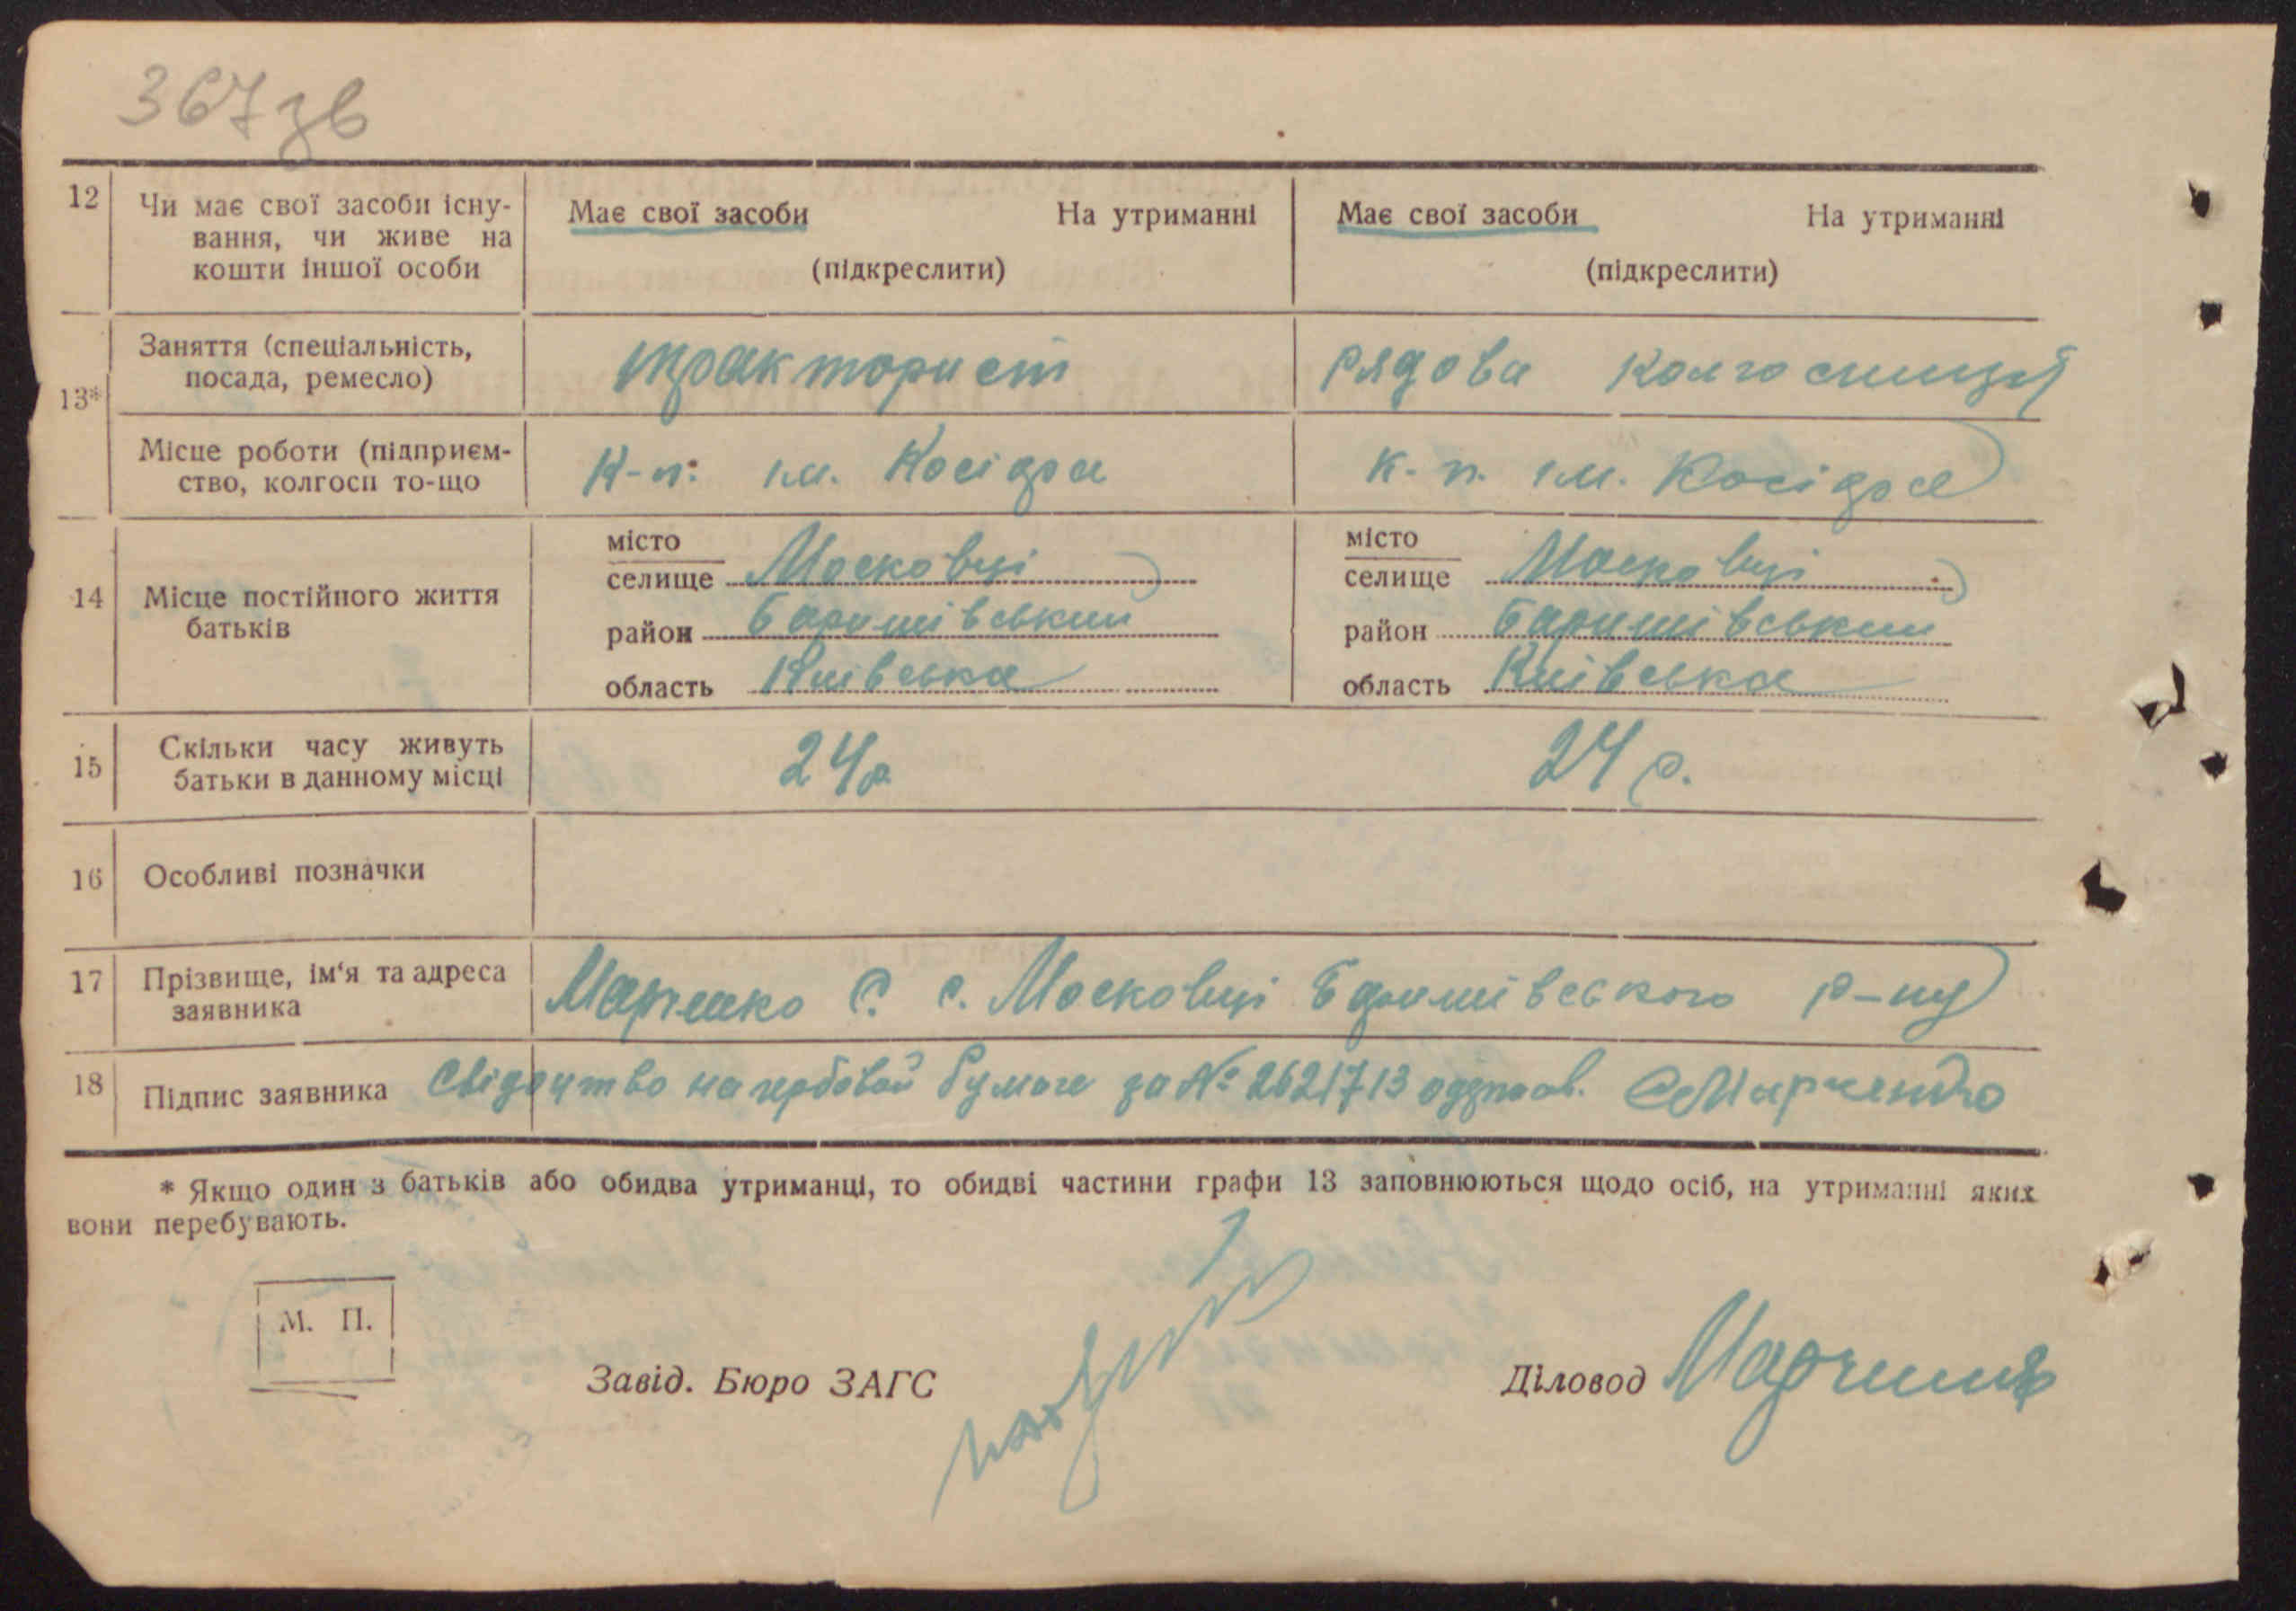 367 зв
12 Чи має свої засоби існу-
вання, чи живе на
кошти іншої особи
Має свої засоби На утриманні
(підкреслити)
Має свої засоби На утриманні
(підкреслити)
13*
Заняття (спеціальність,
посада, ремесло)
тракторист
рядова колгоспниця
Місце роботи (підприєм-
ство, колгосп то-що
К-п. ім. Косіора
к-п. ім. Косіора
14 Місце постійного життя
батьків
місто
селище Масковці
район Баришівський
область Київська
місто
селище Масковці
район Баришівський
область Київська
15 Скільки часу живуть
батьки в данному місці
24 р
24 р.
16 Особливі позначки
17 Прізвище, ім‘я та адреса
заявника
С. с. Масковці Баришівського р-ну
18 Підпис заявника
на гербовой бумаге за № 2621713
* Якщо один з батьків або обидва утриманці, то обидві частини графи 13 заповнюються щодо осіб, на утриманні яких
вони перебувають.
М. П.
Завід. Бюро ЗАГС
Діловод